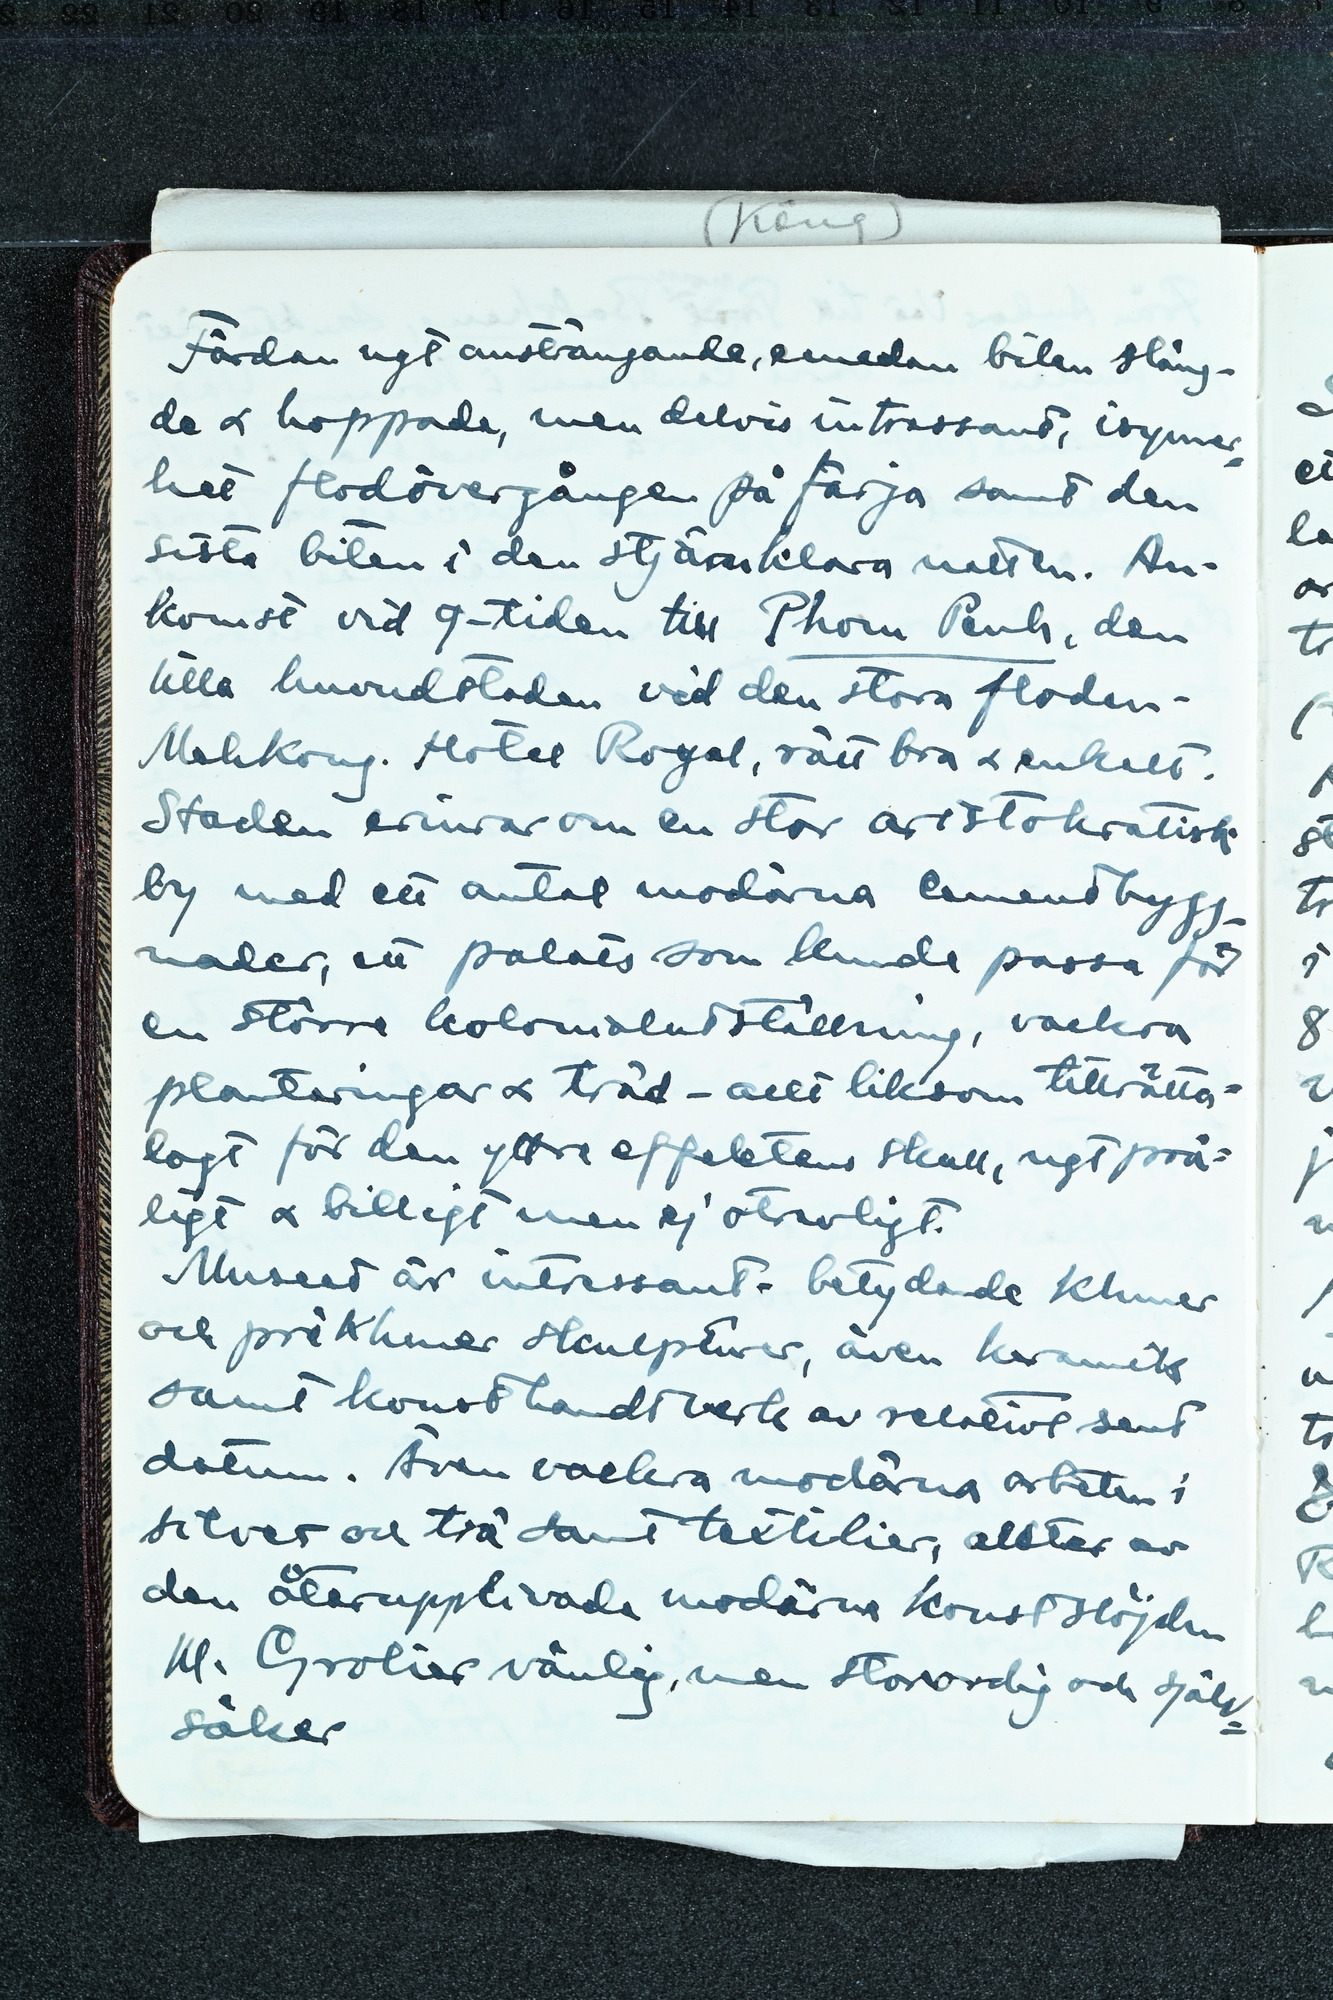 (Kéng)
Färdan ngt ansträngande, emedan bilen släng-
de & hoppade, men delvis intressant, isynner=
het flodövergången på färja samt den
sista biten i den stjärnklara natten. An-
komst vid 9-tiden till Phom Penh, den
lilla huvudstaden vid den stora floden -
MehKong. Hotel Royal, rätt bra & enkelt.
Staden erinrar om en stor aristokratisk
by med ett antal modärna cementbygg-
nader, ett palats som kunde passa för
en större kolonialutställning, vackra
planteringar & träd - allt liksom tillrätta=
lagt för den yttre effektens skull, ngt prå=
ligt & billigt men ej otrevligt.
Museet är intressant - betydande Khmer
och preKhmer skulpturer, även keramik
samt konsthandtverk av relativt sent
datum. Även vackra modärna arbeten i
silver och trä samt textilier, alster av
den återupplivade modärna konstslöjden
M. Grolier vänlig, men storordig och själv=
säker